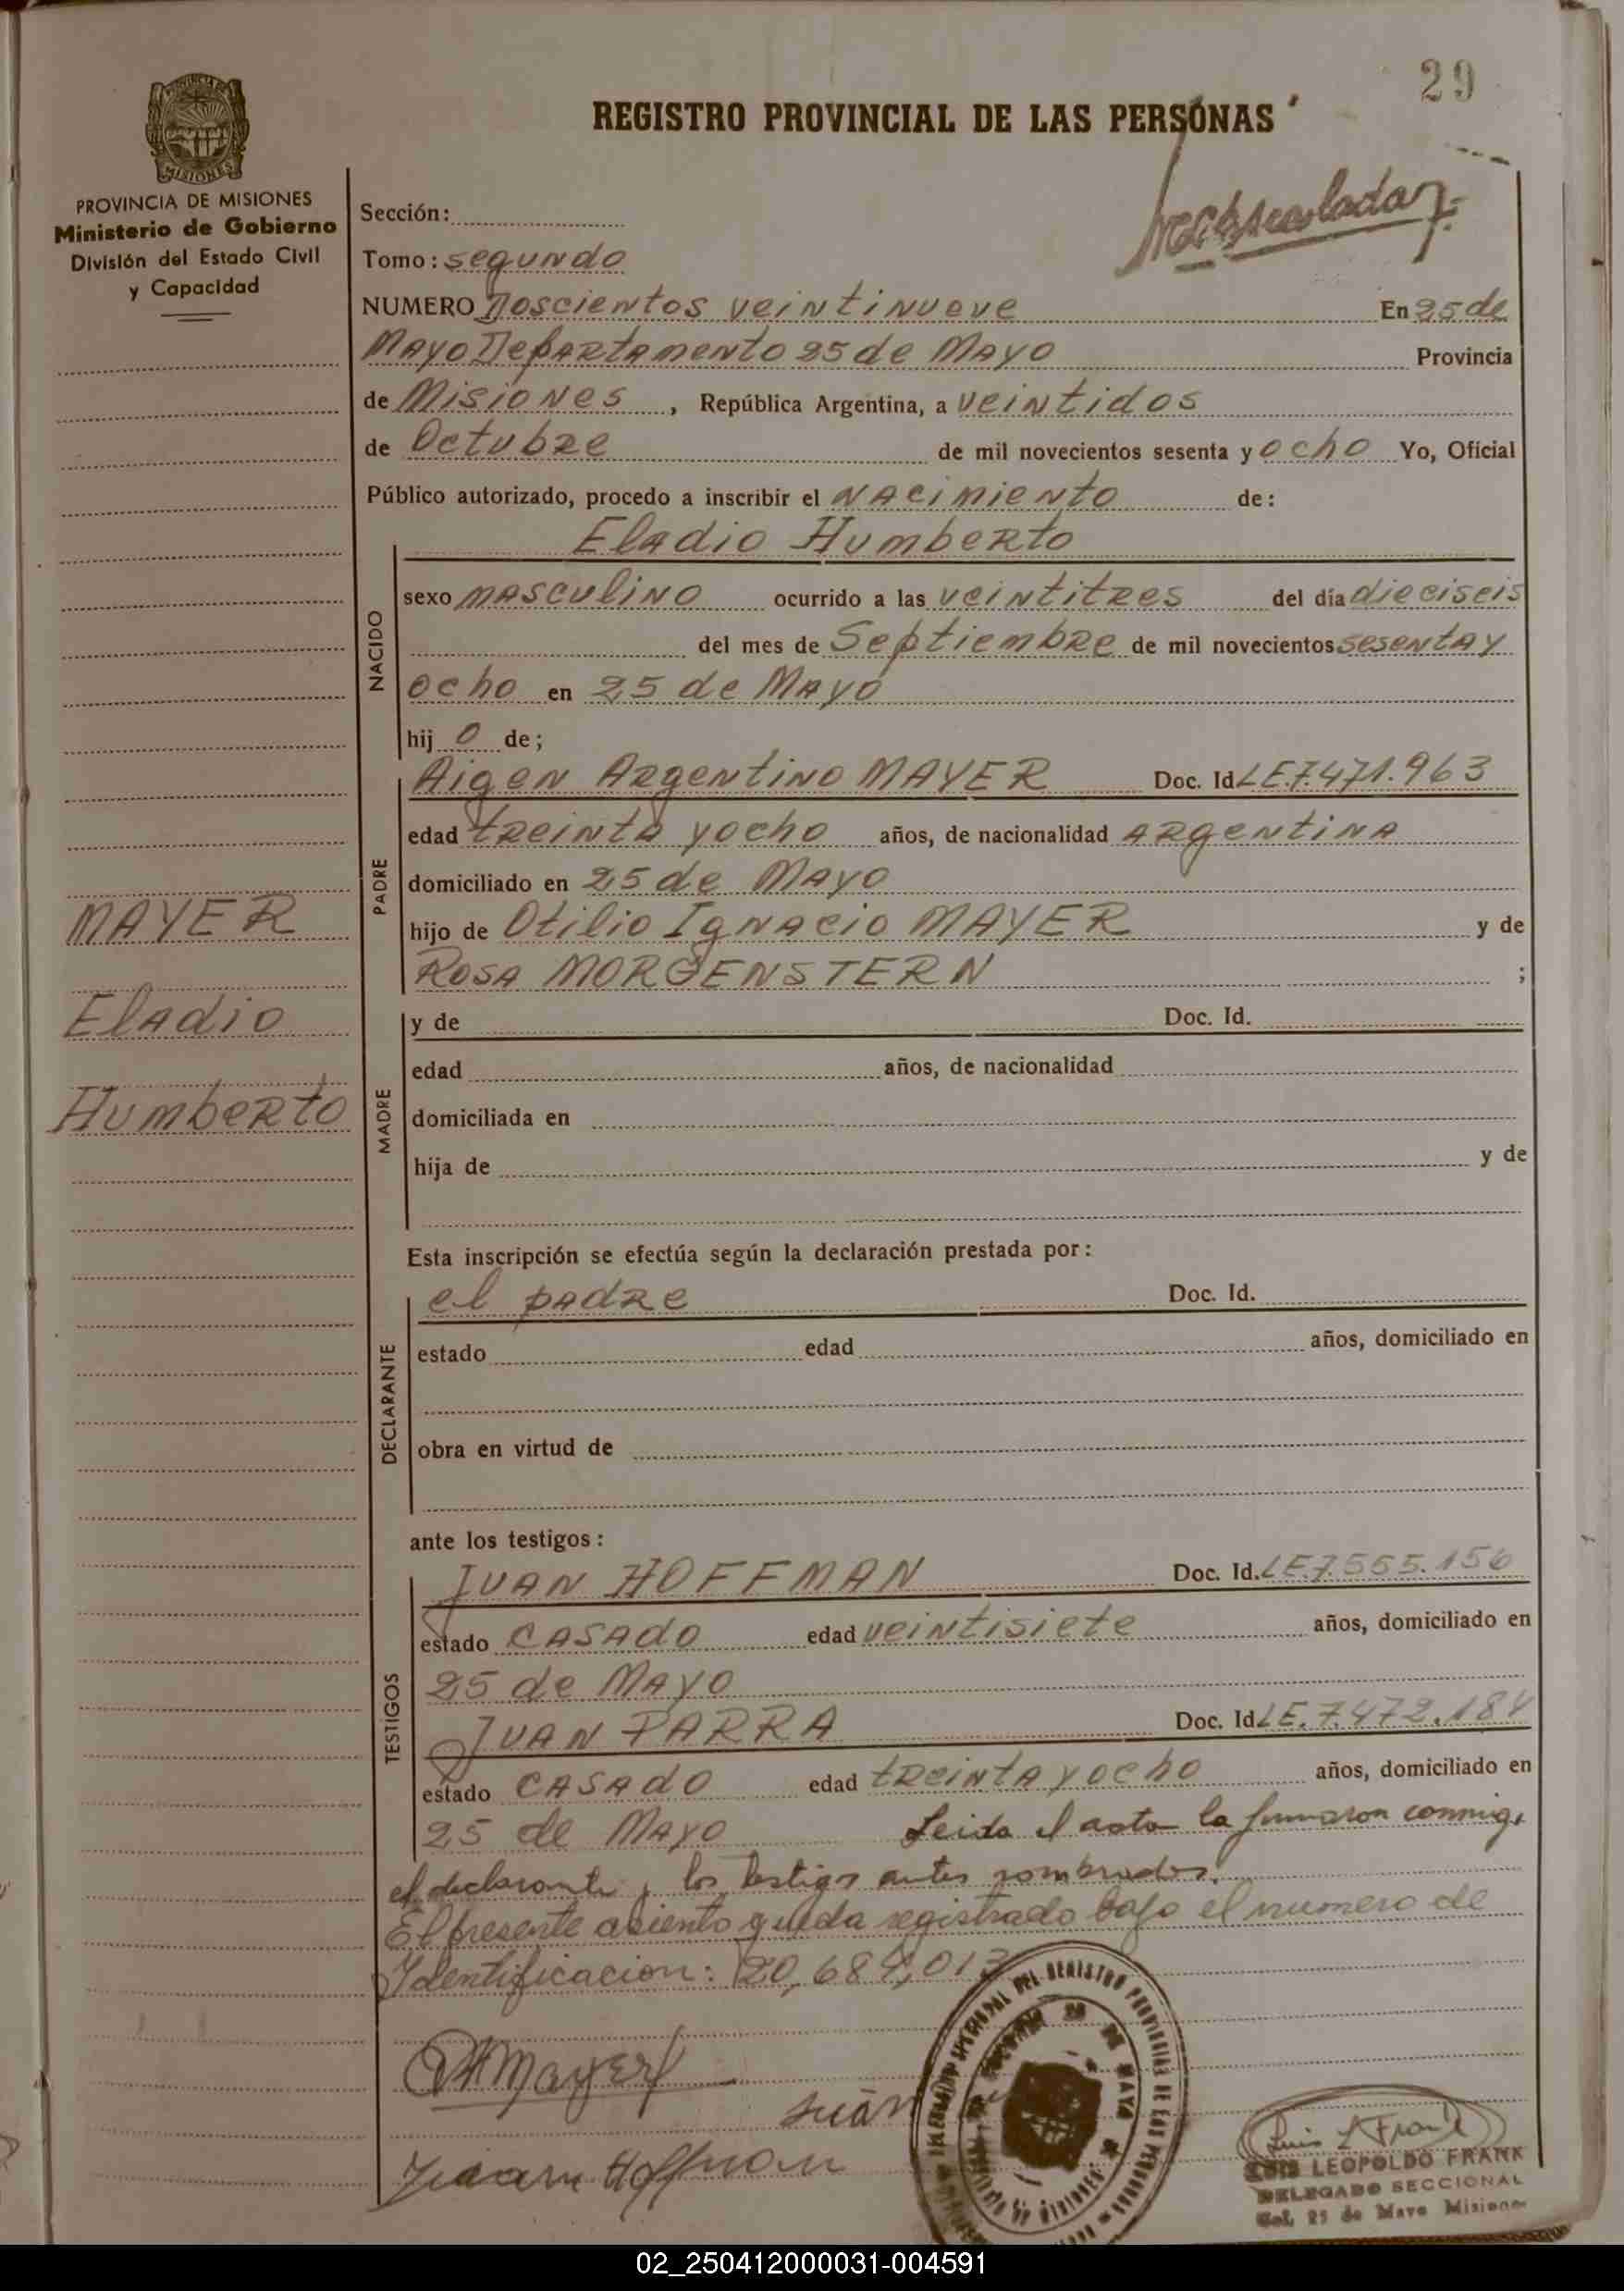 29
REGISTRO PROVINCIAL DE LAS PERSONAS
PROVINCIA DE MISIONES
Ministerio de Gobierno
División del Estado Civil
y Capacidad
Sección:
Tomo: segundo
NUMERO Doscientos veintinueve En 25 de
Mayo Departamento 25 de Mayo Provincia
de Misiones, República Argentina, a veintidos
de Octubre de mil novecientos sesenta y ocho Yo, Oficial
Público autorizado, procedo a inscribir el nacimiento de:
Eladio Humberto
NACIDO
sexo masculino ocurrido a las veintitres del día dieciseis
del mes de Septiembre de mil novecientos sesenta y
ocho en 25 de Mayo
hijo de;
PADRE
Aigen Argentino MAYER Doc. Id LE.7.471.963
edad treinta y ocho años, de nacionalidad Argentina
domiciliado en 25 de Mayo
hijo de Otilio Ignacio MAYER y de
Rosa MORGENSTERN ;
MAYER
Eladio
Humberto
MADRE
y de Doc. Id.
edad años, de nacionalidad
domiciliada en
hija de y de
Esta inscripción se efectúa según la declaración prestada por:
DECLARANTE
el padre Doc. Id.
estado edad años, domiciliado en
obra en virtud de
ante los testigos:
TESTIGOS
Juan HOFFMAN Doc. Id. LE.7.555.156
estado casado edad veintisiete años, domiciliado en
25 de Mayo
Juan PARRA Doc. Id LE.7.472.184
estado casado edad treinta y ocho años, domiciliado en
25 de Mayo Leida el acta la firmaron conmigo
el declarante y los testigos antes nombrados.
El presente asiento queda registrado bajo el numero de
Identificacion: 20,684,013
AAMayer
Juan
Juan Hoffman
Luis L Frank
LUIS LEOPOLDO FRANK
DELEGADO SECCIONAL
Col. 25 de Mayo Misiones
02_250412000031-004591